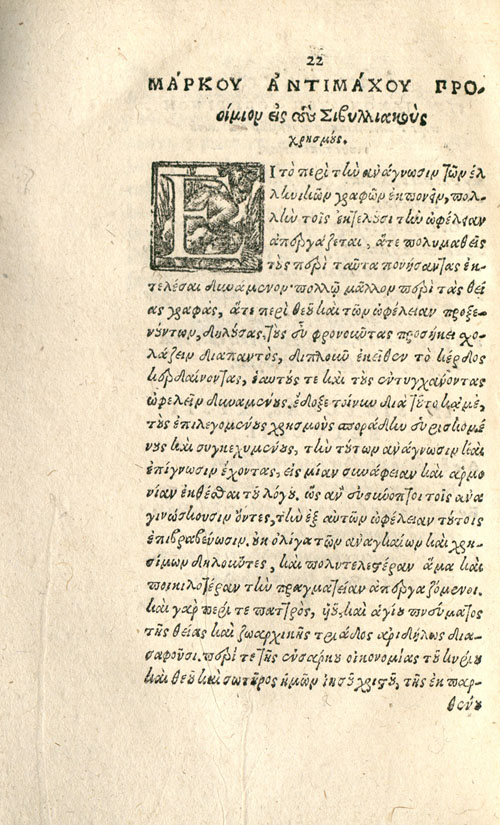 22
ΜΆΡΚΟΥ ἈΝΤΙΜΆΧΟΥ ΠΡΟ-
οίμιον εἰς τοὺς Σιβυλλιακοὺς
χρησμούς.
ΕΙ τὸ περὶ τὴν ἀνάγνωσιν τῶν ἑλ
ληνικῶν γραφῶν ἐκπονεῖν, πολ-
λὴν τοῖς ἐκτελοῦσι τὴν ὠφέλειαν
ἀπεργάζεται, ἅτε πολυμαθεῖς
τοὺς περὶ ταῦτα πονήσαντας ἐκ-
τελέσαι δυνάμενον· πολλῷ μᾶλλον περὶ τὰς θεί
ας γραφὰς, ἅτε περὶ θεοῦ καὶ τῶν ὠφέλειαν προξε-
νούντων, δηλούσας, τοὺς εὖ φρονοῦντας προσήκει σχο-
λάζειν διαπαντὸς, διπλοῦν ἐκεῖθεν τὸ κέρδος
κερδαίνοντας, ἑαυτούς τε καὶ τοὺς ἐντυγχάνοντας
ὠφελεῖν δυναμένους. ἔδοξε τοίνυν διὰ τοῦτο κᾀμὲ,
τοὺς ἐπιλεγομένους χρησμοὺς σποράδην εὑρισκομέ
νους καὶ συγκεχυμένους, τὴν τούτων ἀνάγνωσιν καὶ
ἐπίγνωσιν ἔχοντας, εἰς μίαν συνάφειαν καὶ ἁρμο
νίαν ἐκθέσθαι τοῦ λόγου, ὡς ἂν εὐσύνοπτοι τοῖς ἀνα
γινώσκουσιν ὄντες, τὴν ἐξ αὐτῶν ὠφέλειαν τούτοις
ἐπιβραβεύωσιν. οὐκ ὀλίγα τῶν ἀναγκαίων καὶ χρη-
σίμων δηλοῦντες, καὶ πολυτελεστέραν ἅμα καὶ
ποικιλοτέραν τὴν πραγματείαν ἀπεργαζόμενοι.
καὶ γὰρ περί τε πατρὸς, υἱοῦ, καὶ ἁγίου πνεύματος
τῆς θείας καὶ ζωαρχικῆς τριάδος ἀριδήλως δια-
σαφοῦσι. περί τε τῆς ἐνσάρκου οἰκονομίας τοῦ κυρίου
καὶ θεοῦ καὶ σωτῆρος ἡμῶν ἰησοῦ χριστοῦ, τῆς ἐκ παρ-
θένου